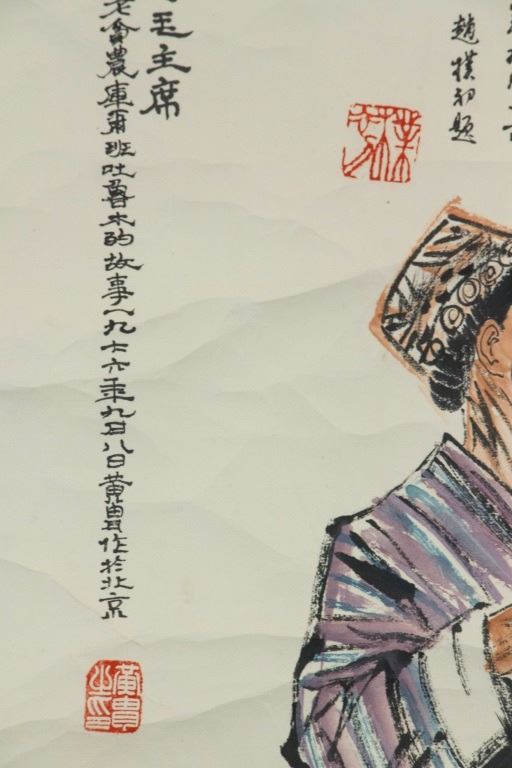 趙樸初題
毛主席
老會農庫爾班吐魯木的故事一九七六年九月八日黃胄作於北京
黃胄之印